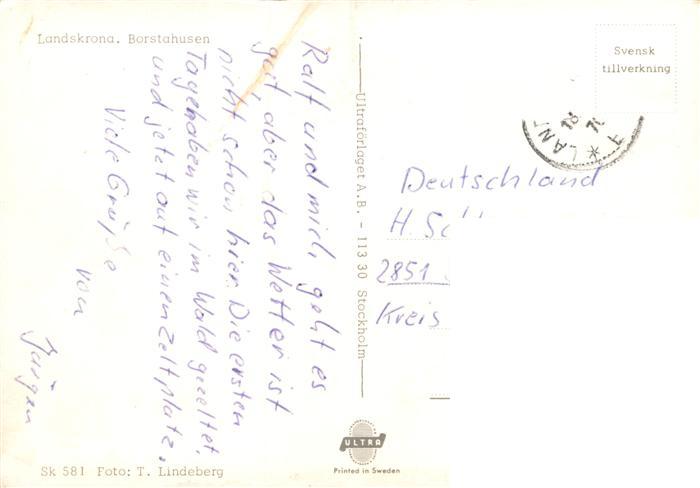 Landskrona. Borstahusen
Ralf und mich, geht es
gut, aber das Wetter ist
nicht schön hier. Die ersten
Tage haben wir im Wald gezeltet.
und jetzt auf einen Zeltplatz.
Viele Grüße
von
Jürgen
Sk 581 Foto: T. Lindeberg
Ultraförlaget A.B. - 113 30 Stockholm
ULTRA
Printed in Sweden
Svensk
tillverkning
LAN
18
Deutschland
H. Sc
2851
Kreis